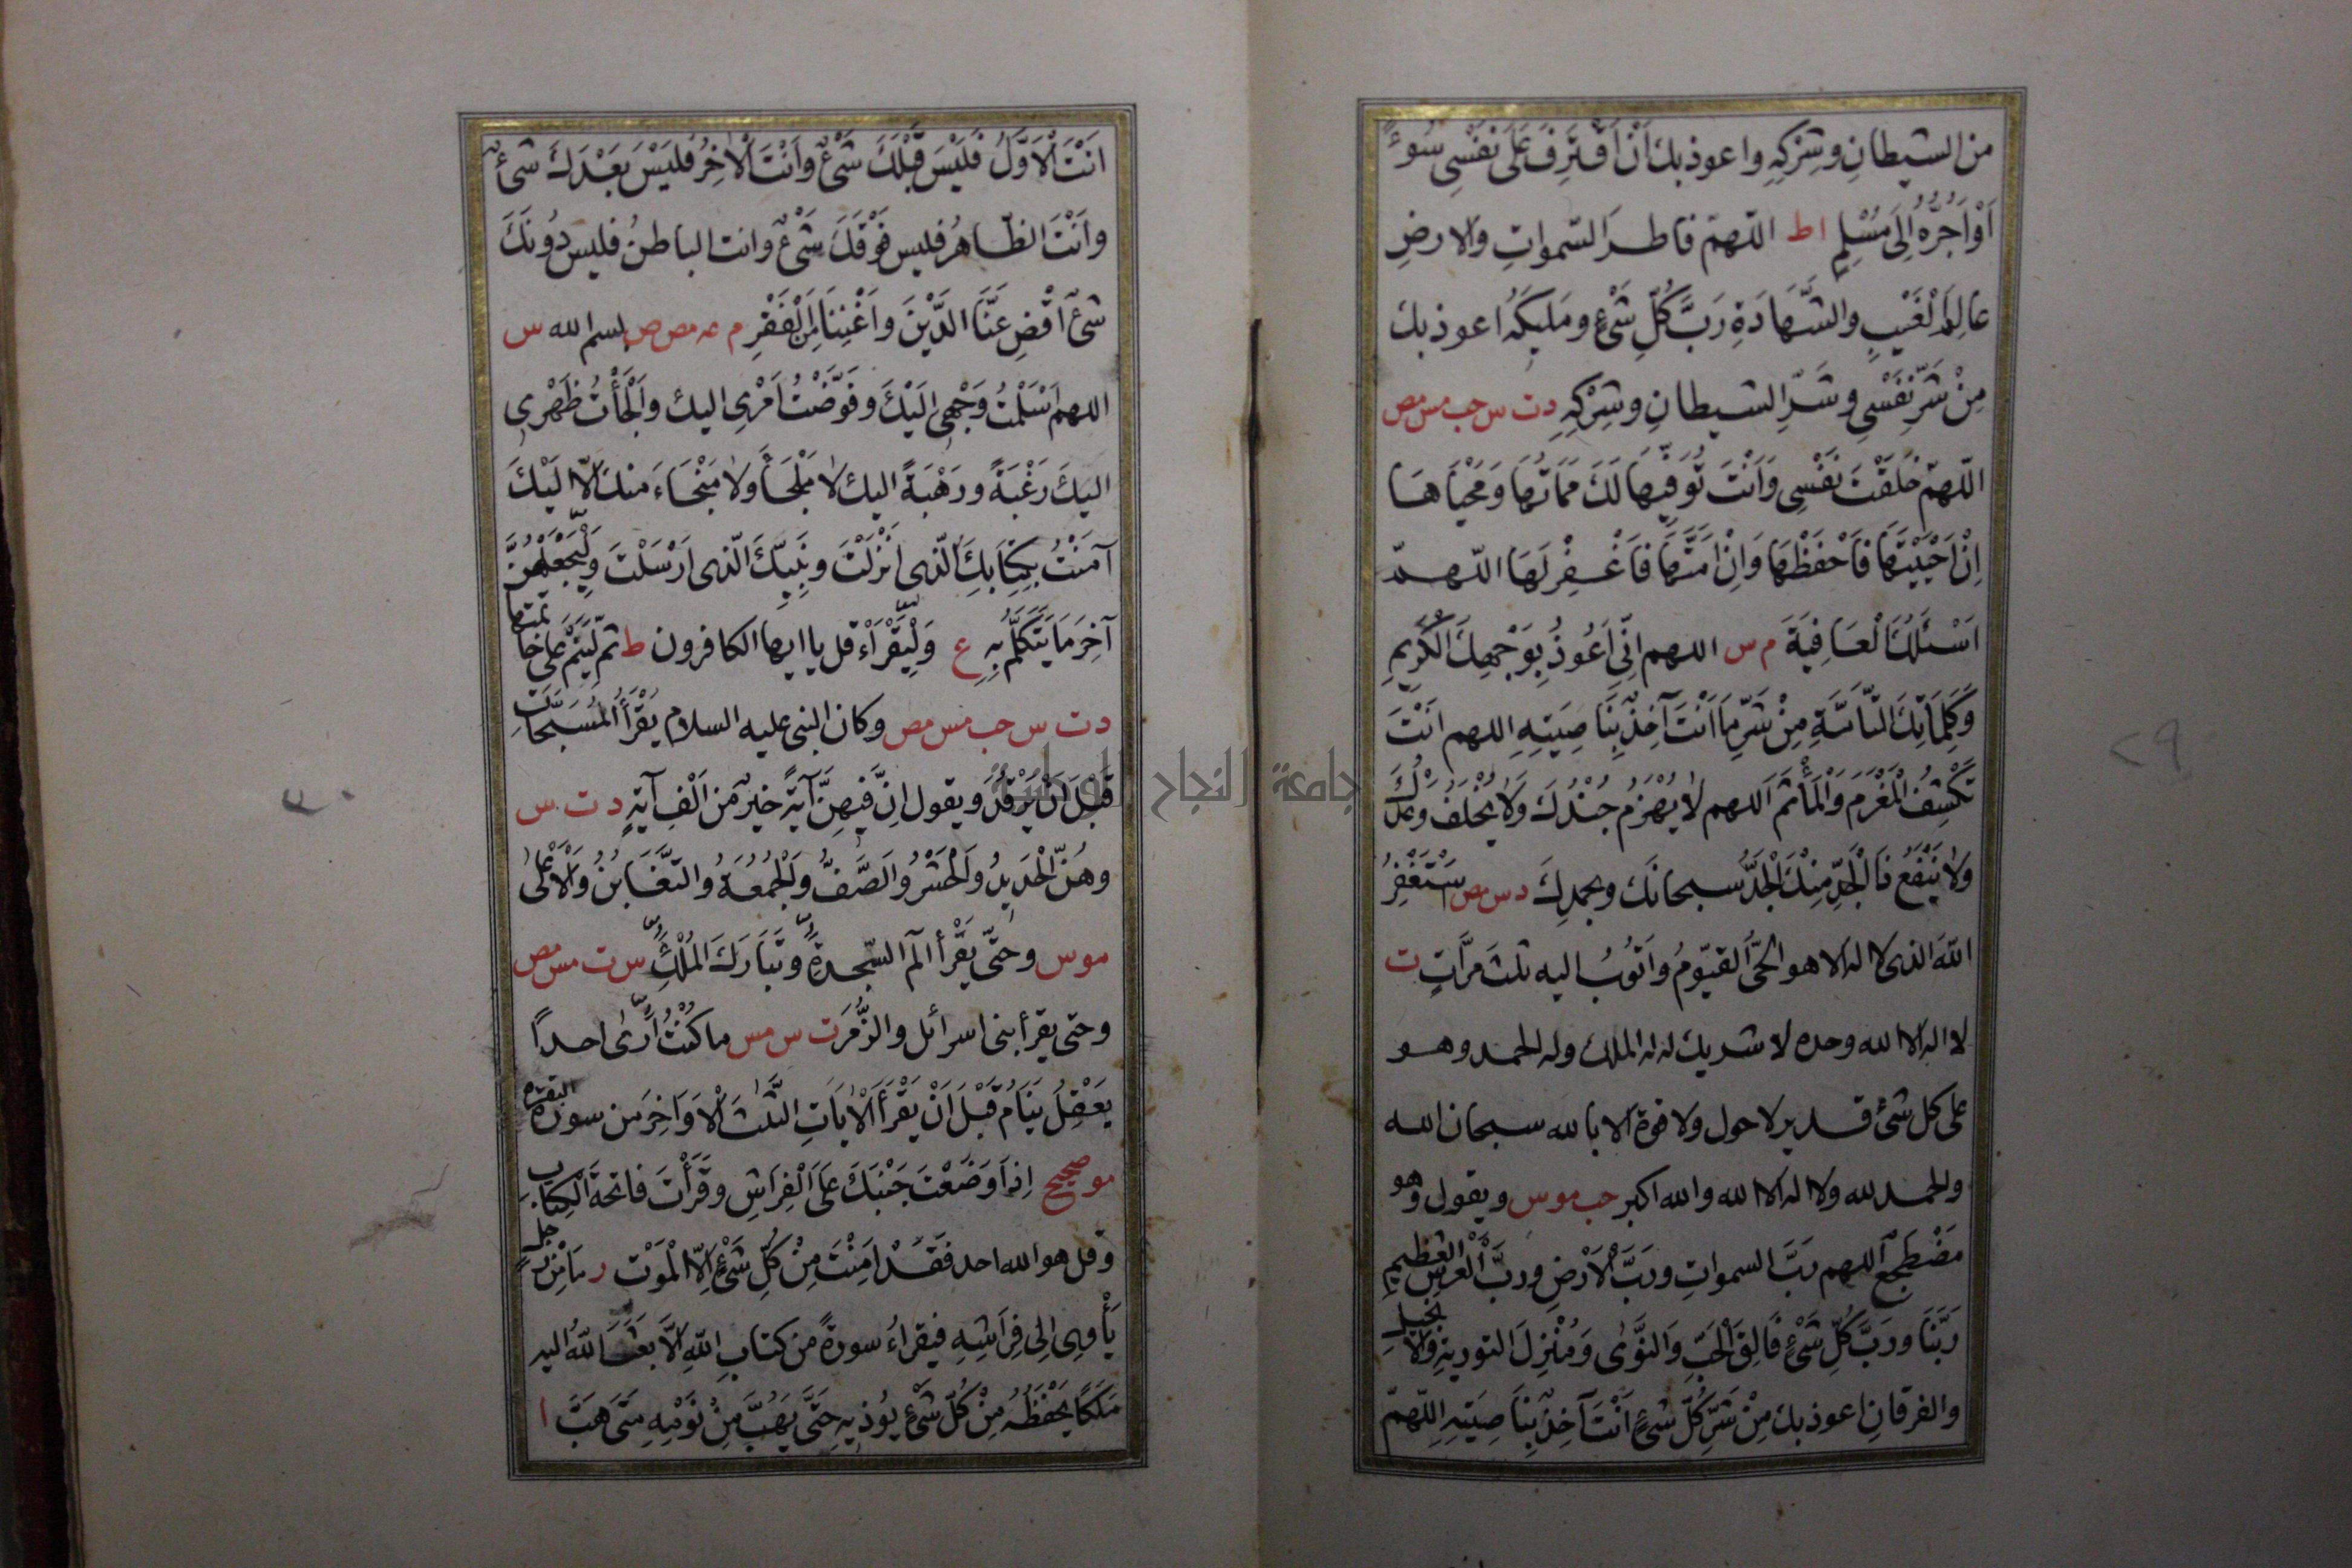 من الشيطانِ وشِرْكِهِ واعوذ بك اَنْ اَقْتَرِفَ عَلَى نَفْسِى سُوءً
اَوْ اَجُرَّهُ اِلَى مُسْلِمٍ اط اللّهمّ فاطرَ السّمواتِ والارضِ
عَالِمَ الْغَيْبِ والشَّهَادَةِ رَبَّ كُلِّ شَىْءٍ ومَلِيكَهُ اعوذ بك
مِنْ شَرِّ نَفْسِى وشَرِّ الشيطانِ وشِرْكِهِ د ت س حب مس مص
اللّهمّ خَلَقْتَ نَفْسِى وَاَنْتَ تُوَفّيهَا لَكَ مَمَاتُهَا وَمَحْيَاهَا
اِنْ اَحْيَيْتَهَا فَاحْفَظْهَا وَاِنْ اَمَتَّهَا فَاغْفِرْ لَهَا اللّهمّ
اَسْئَلُكَ الْعَافِيَةَ م س اللهم اِنِّى اَعُوذُ بِوَجْهِكَ الْكَرِيمِ
وَكَلِمَاتِكَ التَّامَّةِ مِنْ شَرِّ مَا اَنْتَ آخِذٌ بِنَاصِيَتِهِ اللهم اَنْتَ
تَكْشِفُ الْمَغْرَمَ وَالْمَأْثَمَ اللهم لَا يُهْزَمُ جُنْدُكَ وَلَا يُخْلَفُ وَعْدُكَ
وَلَا يَنْفَعُ ذَا الْجَدِّ مِنْكَ الْجَدُّ سبحانَكَ وبحمدِكَ د س مص اَسْتَغْفِرُ
اللهَ الذى لا اله الا هو الحىُّ القيّومُ وَاَتُوبُ اليه ثلثَ مرّاتٍ ت
لا اله الا الله وحده لا شريك له له الملك وله الحمد وهو
على كل شئ قدير لا حول ولا قوة الا بالله سبحان الله
والحمد لله ولا اله الا الله والله اكبر حب موس ويقول وهو
مُضْطَجِعٌ اللهم رَبَّ السمواتِ وربَّ الْاَرْضِ وربَّ الْعَرْشِ الْعَظِيمِ
رَبَّنَا ورَبَّ كُلِّ شَىْءٍ فَالِقَ الْحَبِّ وَالنَّوَى وَمُنْزِلَ التوريةِ والانجيلِ
والفرقانِ اعوذ بك مِنْ شَرِّ كُلِّ شَىْءٍ اَنْتَ آخِذٌ بِنَاصِيَتِهِ اللّهمّ
٢٩
اَنْتَ الْاَوَّلُ فَلَيْسَ قَبْلَكَ شَىْءٌ وَاَنْتَ الْآخِرُ فَلَيْسَ بَعْدَكَ شَىْءٌ
وَاَنْتَ الظّاهرُ فليس فَوْقَكَ شَىْءٌ وانت الباطنُ فليس دُونَكَ
شَىْءٌ اقْضِ عَنَّا الدَّيْنَ وَاَغْنِنَا مِنَ الْفَقْرِ م عه مص ص بسم الله س
اللهم اَسْلَمْتُ وَجْهِى اِلَيْكَ وفَوَّضْتُ اَمْرِى اليك والْجَأْتُ ظَهْرِى
اليكَ رَغْبَةً ورَهْبَةً اليك لا مَلْجَأَ ولا مَنْجَاءَ منك اِلَّا اِلَيْكَ
آمَنْتُ بِكِتَابِكَ الّذى اَنْزَلْتَ وبِنَبِيِّكَ الّذى اَرْسَلْتَ وَلْيَجْعَلْهُنَّ
آخِرَ مَا يَتَكَلَّمُ بِهِ ع وَلْيَقْرَاْءْ قل يا ايها الكافرون ط ثم لْيَنَمْ على خاتمتها
د ت س حب مس مص وكان النبى عليه السلام يَقْرَأُ الْمُسَبِّحَاتِ
قَبْلَ اَنْ يَرْقُدَ ويقول اِنَّ فِيهِنَّ آيَةً خيرٌ من اَلْفِ آيَةٍ د ت س
وهُنَّ الْحَدِيدُ وَالْحَشْرُ وَالصَّفُّ وَالْجُمُعَةُ والتَّغَابُنُ وَالْاَعْلَى
موس وحَتَّى يَقْرأ الم السّجدةَ وتَبَارَكَ الْمُلْكَ س ت مس مص
وحتى يقرأ بنى اسرائل والزُّمَرَ ت س مس ما كُنْتُ اَرَى احداً
يَعْقِلُ يَنَامُ قَبْلَ اَنْ يَقْرَأَ الْآيَاتِ الثَّلٰثَ الْاَوَاخِرَ من سورة البقرة
مو صحيح اِذَا وَضَعْتَ جَنْبَكَ عَلَى الْفِرَاشِ وقَرَأْتَ فاتحةَ الْكِتَابِ
وقل هو الله احد فَقَدْ اَمِنْتَ مِنْ كُلِّ شَىْءٍ اِلَّا الْمَوْتَ ر مَا مِنْ رَجُلٍ
يَأْوِى اِلى فِرَاشِهِ فيقراءُ سورةً من كتابِ اللهِ اِلَّا بَعَثَ اللهُ اليه
مَلَكًا يَحْفَظُهُ مِنْ كُلِّ شَىْءٍ يُوذيهِ حَتَّى يَهُبَّ مِنْ نَوْمِهِ مَتَى هَبَّ ا
٣٠
جامعة النجاح الوطنية